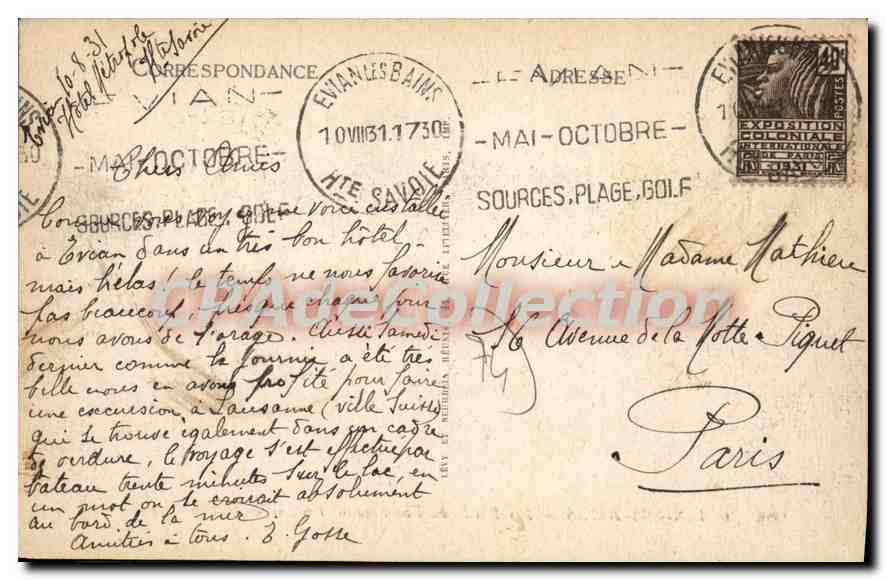 Evian 10-8-31
Hôtel Métropole
Hte Savoie
CORRESPONDANCE
ADRESSE
EVIAN LES BAINS
10 VIII 31.1730
HTE SAVOIE
EVIAN
MAI-OCTOBRE
SOURCES, PLAGE, GOLF
EVIAN
MAI-OCTOBRE
SOURCES, PLAGE, GOLF
40c
POSTES
EXPOSITION
COLONIALE
INTERNATIONALE
DE PARIS
1931
Chers Amis
Comme vous voyez me voici installée
à Evian dans un très bon hôtel,
mais hélas! le temps ne nous favorise
pas beaucoup, presque chaque jour
nous avons de l'orage. Aussi Samedi
dernier comme la journée a été très
belle nous en avons profité pour faire
une excursion à Lausanne (ville Suisse)
qui se trouve également dans un cadre
de verdure, le voyage s'est effectué par
bateau trente minutes sur le lac, en
un mot on se croirait absolument
au bord de la mer.
Amitiés à tous. E. Gosse
Monsieur & Madame Mathieu
36 Avenue de la Motte-Piquet
Paris
LÉVY ET NEURDEIN RÉUNIS
CPAdeCollection